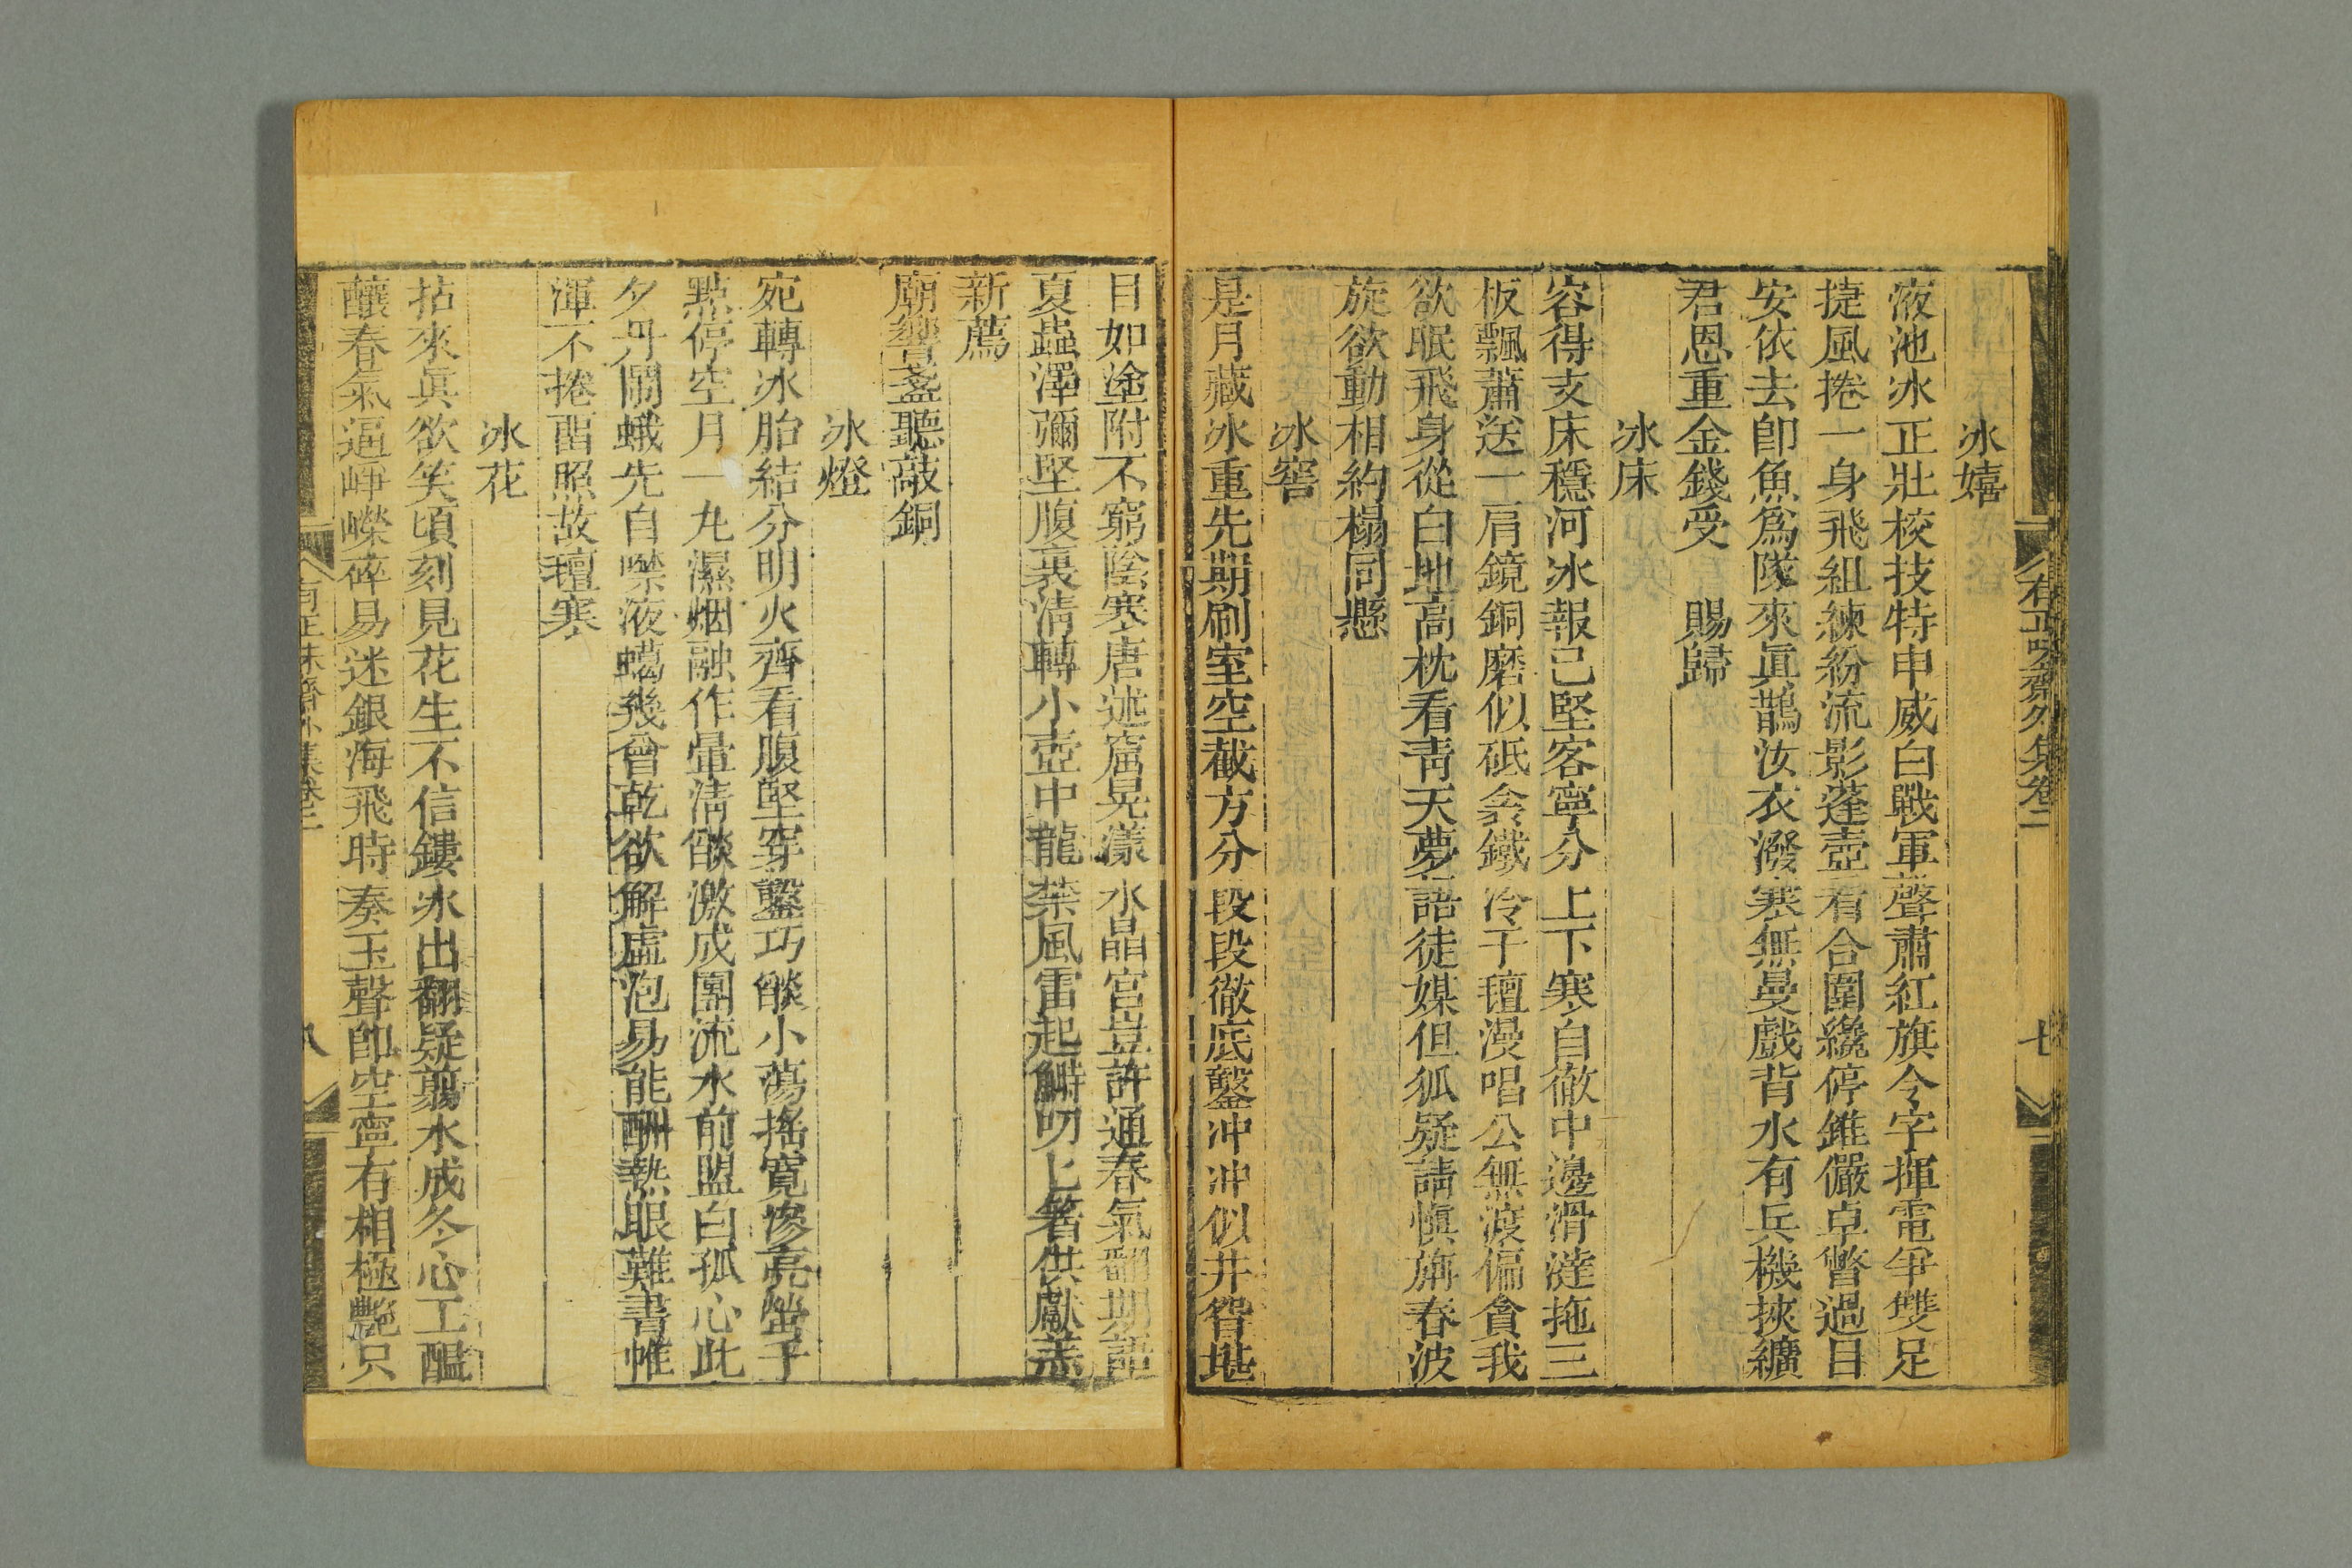 冰嬉
液池冰正壯校技特申威白戰軍聲肅紅旗令字揮電爭雙足
捷風捲一身飛組練紛流影蓬壺看合圍纔停錐儼卓瞥過目
安依去卽魚爲隊來眞鵲汝衣潑寒無曼戲背水有兵機挾纊
君恩重金錢受 賜歸
冰床
容得支床穩河冰報已堅客寧分上下寒自徹中邊滑澾拖三
板飄蕭送一肩鏡銅磨似砥衾鐵冷于氊漫唱公無渡偏貪我
欲眠飛身從白地高枕看靑天夢語徒媒但狐疑請愼旃春波
旋欲動相約榻同懸
冰窖
是月藏冰重先期刷室空截方分段段徹底鑿冲冲似井甃堪
目如塗附不窮陰寒唐述窟晃漾水晶宮豈許通春氣翻期語
夏蟲澤彌堅腹裏淸轉小壺中龍禁風雷起觽叨匕箸供獻羔
新薦
廟響盞聽敲銅
冰燈
宛轉冰胎結分明火齊看腹堅穿鑿巧燄小蕩搖寬慘亮螢子
點停空月一丸濕烟融作暈淸燄激成團流水前盟白孤心此
夕丹開蛾先自噤液蠟幾曾乾欲解虛泡易能酬熱眼難書帷
渾不捲酉照故氊寒
冰花
拈來眞欲笑頃刻見花生不信鏤冰出翻疑翦水成冬心工醞
釀春氣逼崢嶸碎易迷銀海飛時奏玉聲卽空寧有相極艷只
有正味齋外集卷二
七
有正味齋外集卷二
八